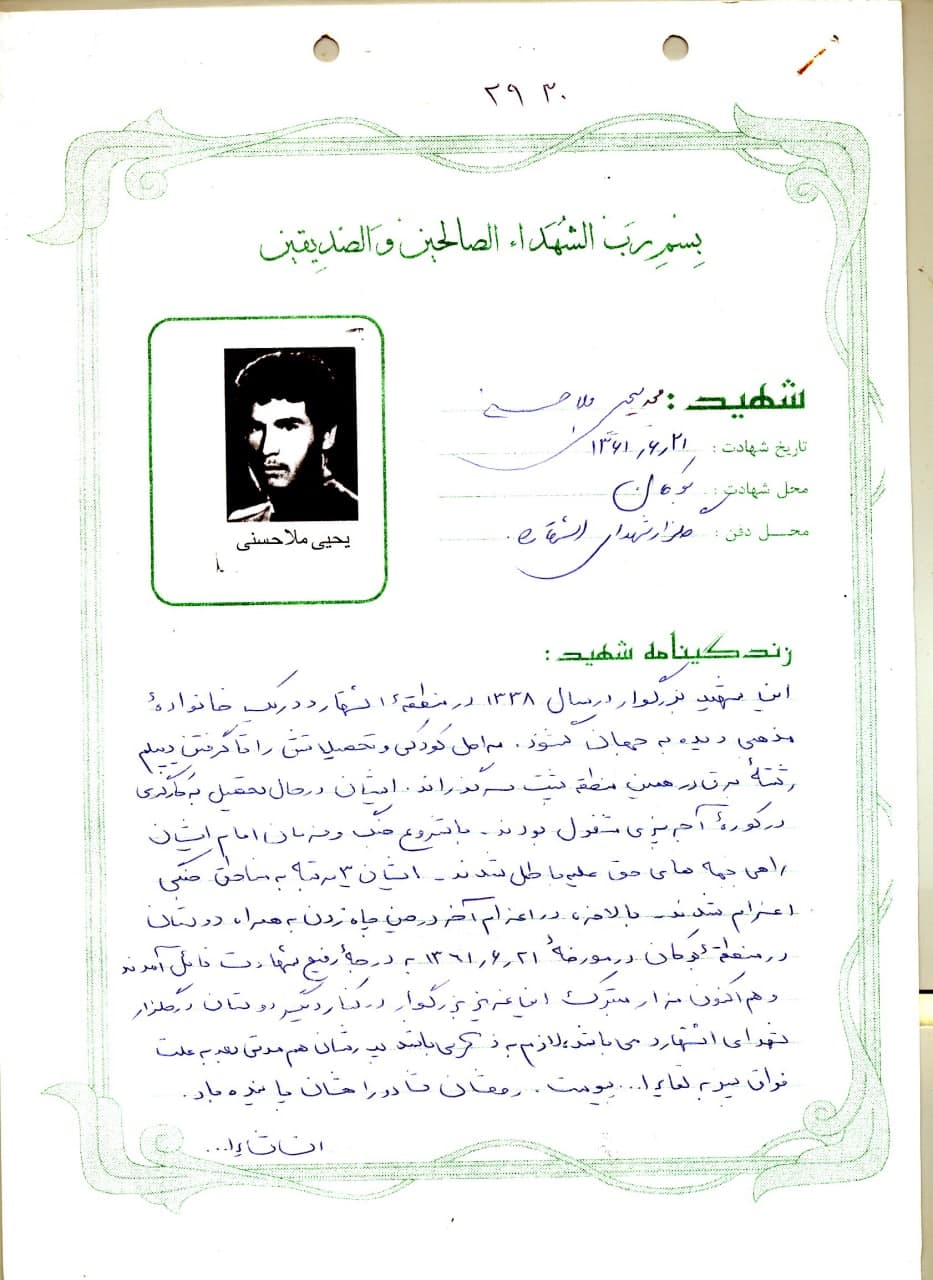 ۲۹ ۳۰
بِسْمِ رَبِّ الشُّهَدَاء الصالحین وَ الصِّدِیقین
شهید : محمد یحیی ملا حسنی
تاریخ شهادت : ۱۳۶۱٫۶٫۲۱
محل شهادت : بوکان
محل دفن : گلزار شهدای اشتهارد
یحیی ملاحسنی
زندگینامه شهید :
این شهید بزرگوار در سال ۱۳۳۸ در منطقهٔ اشتهارد در یک خانوادهٔ
مذهبی دیده به جهان گشود. مراحل کودکی و تحصیلاتش را تا گرفتن دیپلم
رشتهٔ برق در همین منطقه پشت سر گذراند. ایشان در حال تحصیل به کارگری
در کورهٔ آجر پزی مشغول بودند. با شروع جنگ و فرمان امام ایشان
راهی جبهه های حق علیه باطل شدند. ایشان ۳ مرتبه به مناطق جنگی
اعزام شدند. بالاخره در اعزام آخر در حین چاه زدن به همراه دوستان
در منطقهٔ بوکان در مورخهٔ ۱۳۶۱٫۶٫۲۱ به درجهٔ رفیع شهادت نائل آمدند
و هم اکنون مزار متبرک این عزیز بزرگوار در کنار دیگر دوستان در گلزار
شهدای اشتهارد می باشد. لازم به ذکر می باشد پدرشان هم مدتی بعد به علت
فراق پسر به لقاء ا... پیوست. روحشان شاد و راهشان پاینده باد.
ان شاء ا...